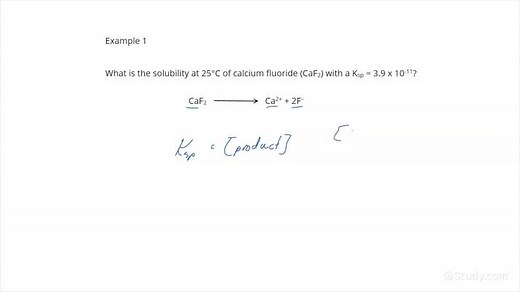 Example 1
What is the solubility at 25°C of calcium fluoride (CaF₂) with a Kₛₚ = 3.9 x 10⁻¹¹?
CaF₂ ⟶ Ca²⁺ + 2F⁻
Kₛₚ = [product] [
Study.com